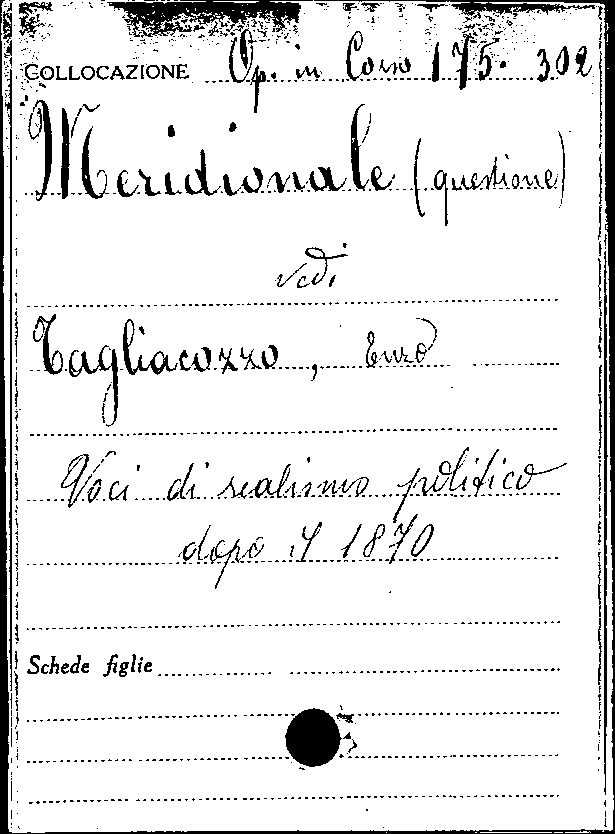 COLLOCAZIONE Op. in Corso 175. 302
Meridionale (questione)
vedi
Tagliacozzo, Enzo
Voci di realismo politico
dopo il 1870
Schede figlie